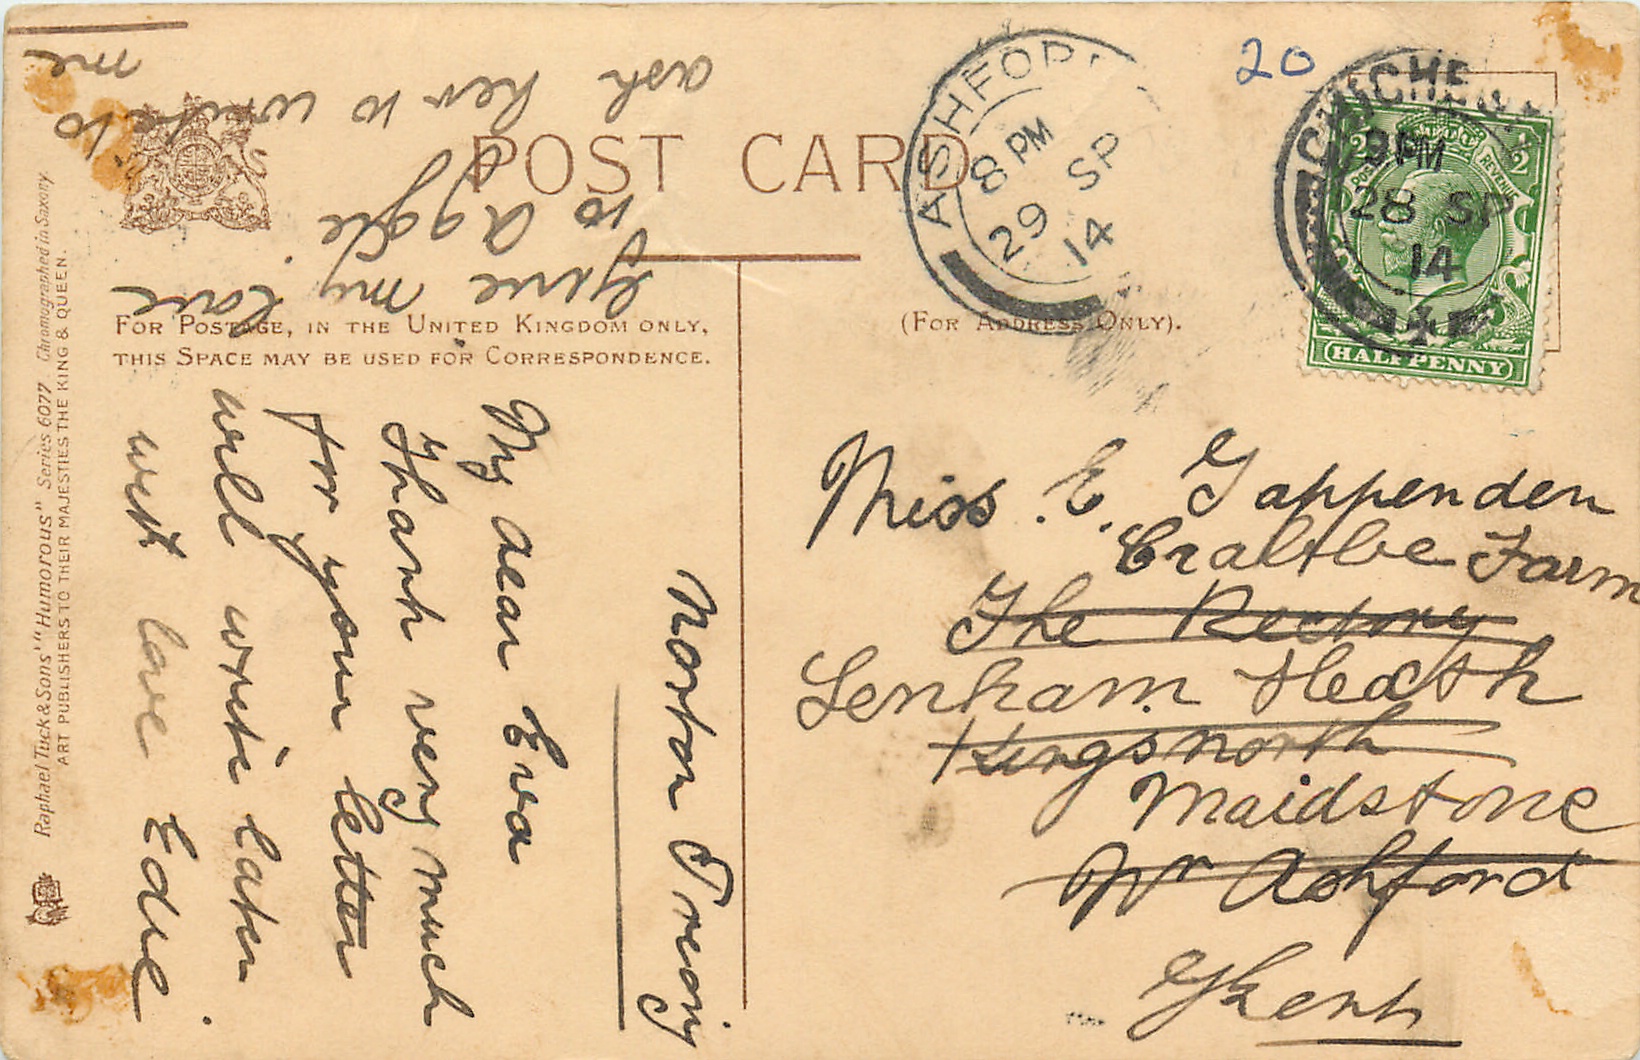 POST CARD
FOR POSTAGE, IN THE UNITED KINGDOM ONLY,
THIS SPACE MAY BE USED FOR CORRESPONDENCE.
(FOR ADDRESS ONLY).
Raphael Tuck & Sons' "Humorous" Series 6077 Chromographed in Saxony
ART PUBLISHERS TO THEIR MAJESTIES THE KING & QUEEN.
20
ASHFORD
8 PM
29 SP
14
CHICHE
9 PM
28 SP
14
POSTAGE REVENUE
HALFPENNY
Norton Priory
My dear Eva
Thank very much
for your letter
will write later
with love Edie.
Give my love
to Aggie
ask her to write to
me
Miss E. Gappenden
Crabbe Farm
The Rectory
Lenham Heath
Kingsnorth
Maidstone
Nr Ashford
Kent